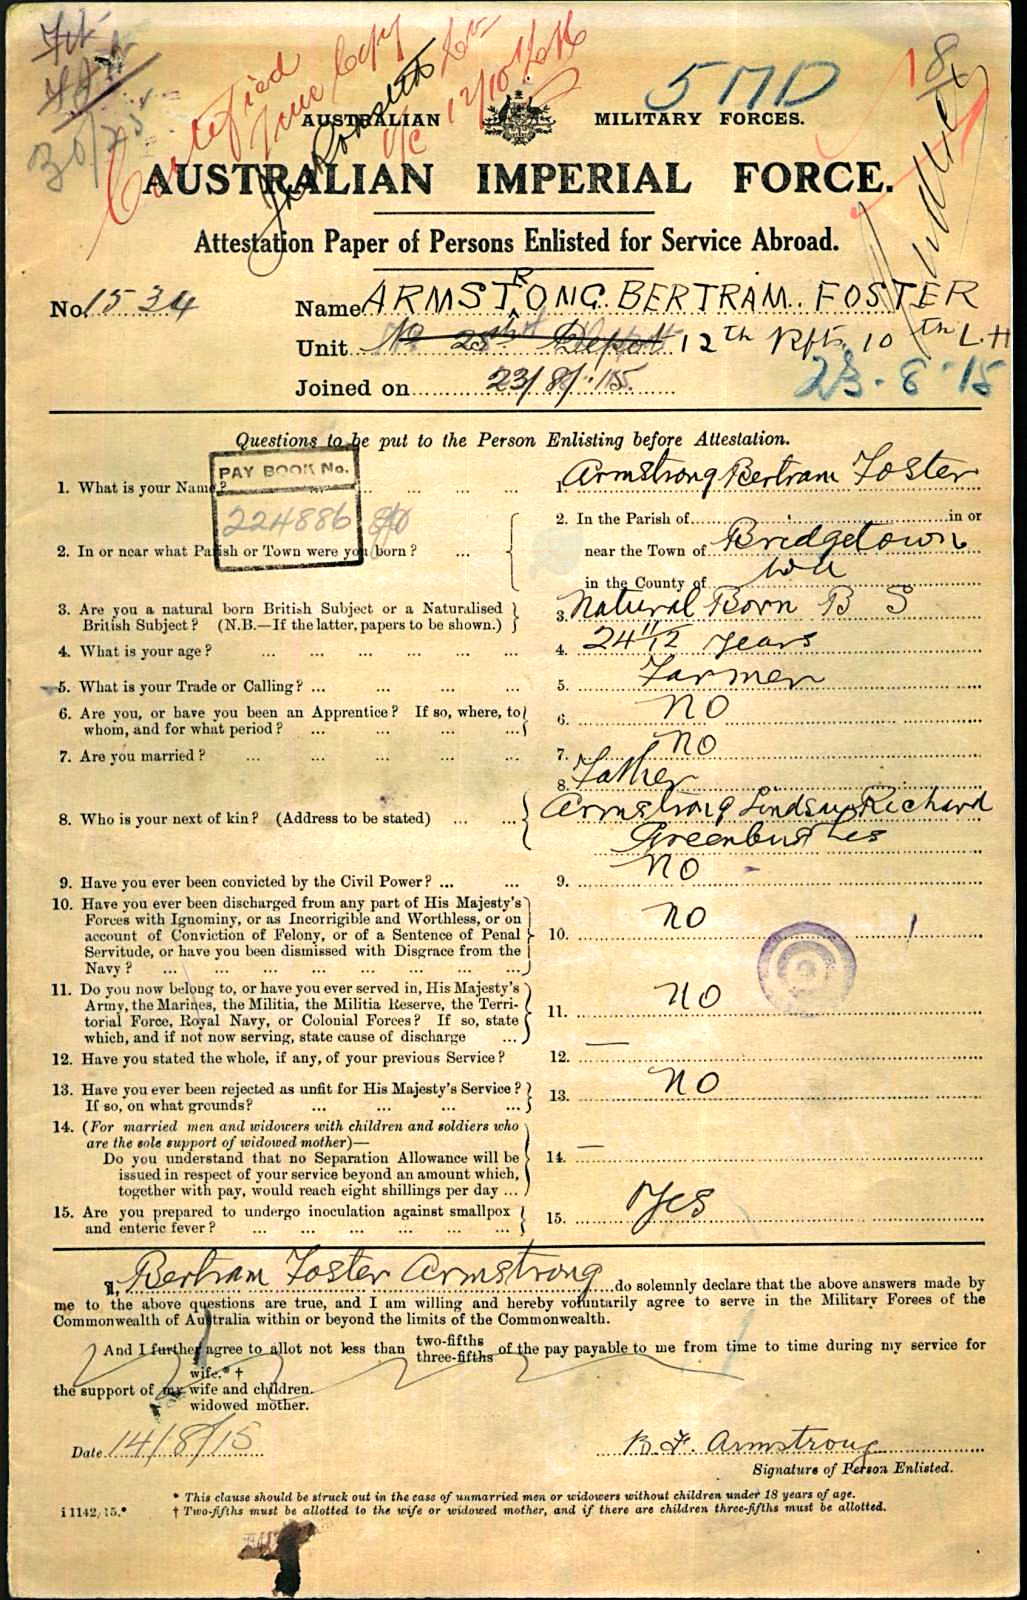 Certified
True Copy
12/10/
30/7/
5 MD
AUSTRALIAN MILITARY FORCES.
AUSTRALIAN IMPERIAL FORCE.
Attestation Paper of Persons Enlisted for Service Abroad.
No. 1534 Name ARMSTRONG. BERTRAM. FOSTER
Unit No 28th Depot 12th Rfts 10th L.H
Joined on 23/8/15.
23.8.15
Questions to be put to the Person Enlisting before Attestation.
PAY BOOK No.
224886
1. What is your Name? ... ... ... ... 1. Armstrong Bertram Foster
2. In or near what Parish or Town were you born? ... 2. In the Parish of in or
near the Town of Bridgetown
in the County of WA
3. Are you a natural born British Subject or a Naturalised
British Subject? (N.B.—If the latter, papers to be shown.) 3. Natural Born B S
4. What is your age? ... ... ... ... ... 4. 24 11/12 years
5. What is your Trade or Calling? ... ... ... ... 5. Farmer
6. Are you, or have you been an Apprentice? If so, where, to
whom, and for what period? ... ... ... ... 6. NO
7. Are you married? ... ... ... ... ... 7. NO
8. Father
8. Who is your next of kin? (Address to be stated) ... ... Armstrong Lindsay Richard
Greenbushes
9. Have you ever been convicted by the Civil Power? ... ... 9. NO
10. Have you ever been discharged from any part of His Majesty's
Forces with Ignominy, or as Incorrigible and Worthless, or on
account of Conviction of Felony, or of a Sentence of Penal
Servitude, or have you been dismissed with Disgrace from the
Navy? ... ... ... ... ... ... ... 10. NO
11. Do you now belong to, or have you ever served in, His Majesty's
Army, the Marines, the Militia, the Militia Reserve, the Terri-
torial Force, Royal Navy, or Colonial Forces? If so, state
which, and if not now serving, state cause of discharge ... 11. NO
12. Have you stated the whole, if any, of your previous Service? 12. —
13. Have you ever been rejected as unfit for His Majesty's Service?
If so, on what grounds? ... ... ... ... 13. NO
14. (For married men and widowers with children and soldiers who
are the sole support of widowed mother)—
Do you understand that no Separation Allowance will be
issued in respect of your service beyond an amount which,
together with pay, would reach eight shillings per day ... 14. —
15. Are you prepared to undergo inoculation against smallpox
and enteric fever? ... ... ... ... ... 15. Yes
I, Bertram Foster Armstrong do solemnly declare that the above answers made by
me to the above questions are true, and I am willing and hereby voluntarily agree to serve in the Military Forces of the
Commonwealth of Australia within or beyond the limits of the Commonwealth.
And I further agree to allot not less than two-fifths three-fifths of the pay payable to me from time to time during my service for
wife.* †
the support of my wife and children.
widowed mother.
Date 14/8/15 B F Armstrong
Signature of Person Enlisted.
* This clause should be struck out in the case of unmarried men or widowers without children under 18 years of age.
i 1142/15.* † Two-fifths must be allotted to the wife or widowed mother, and if there are children three-fifths must be allotted.